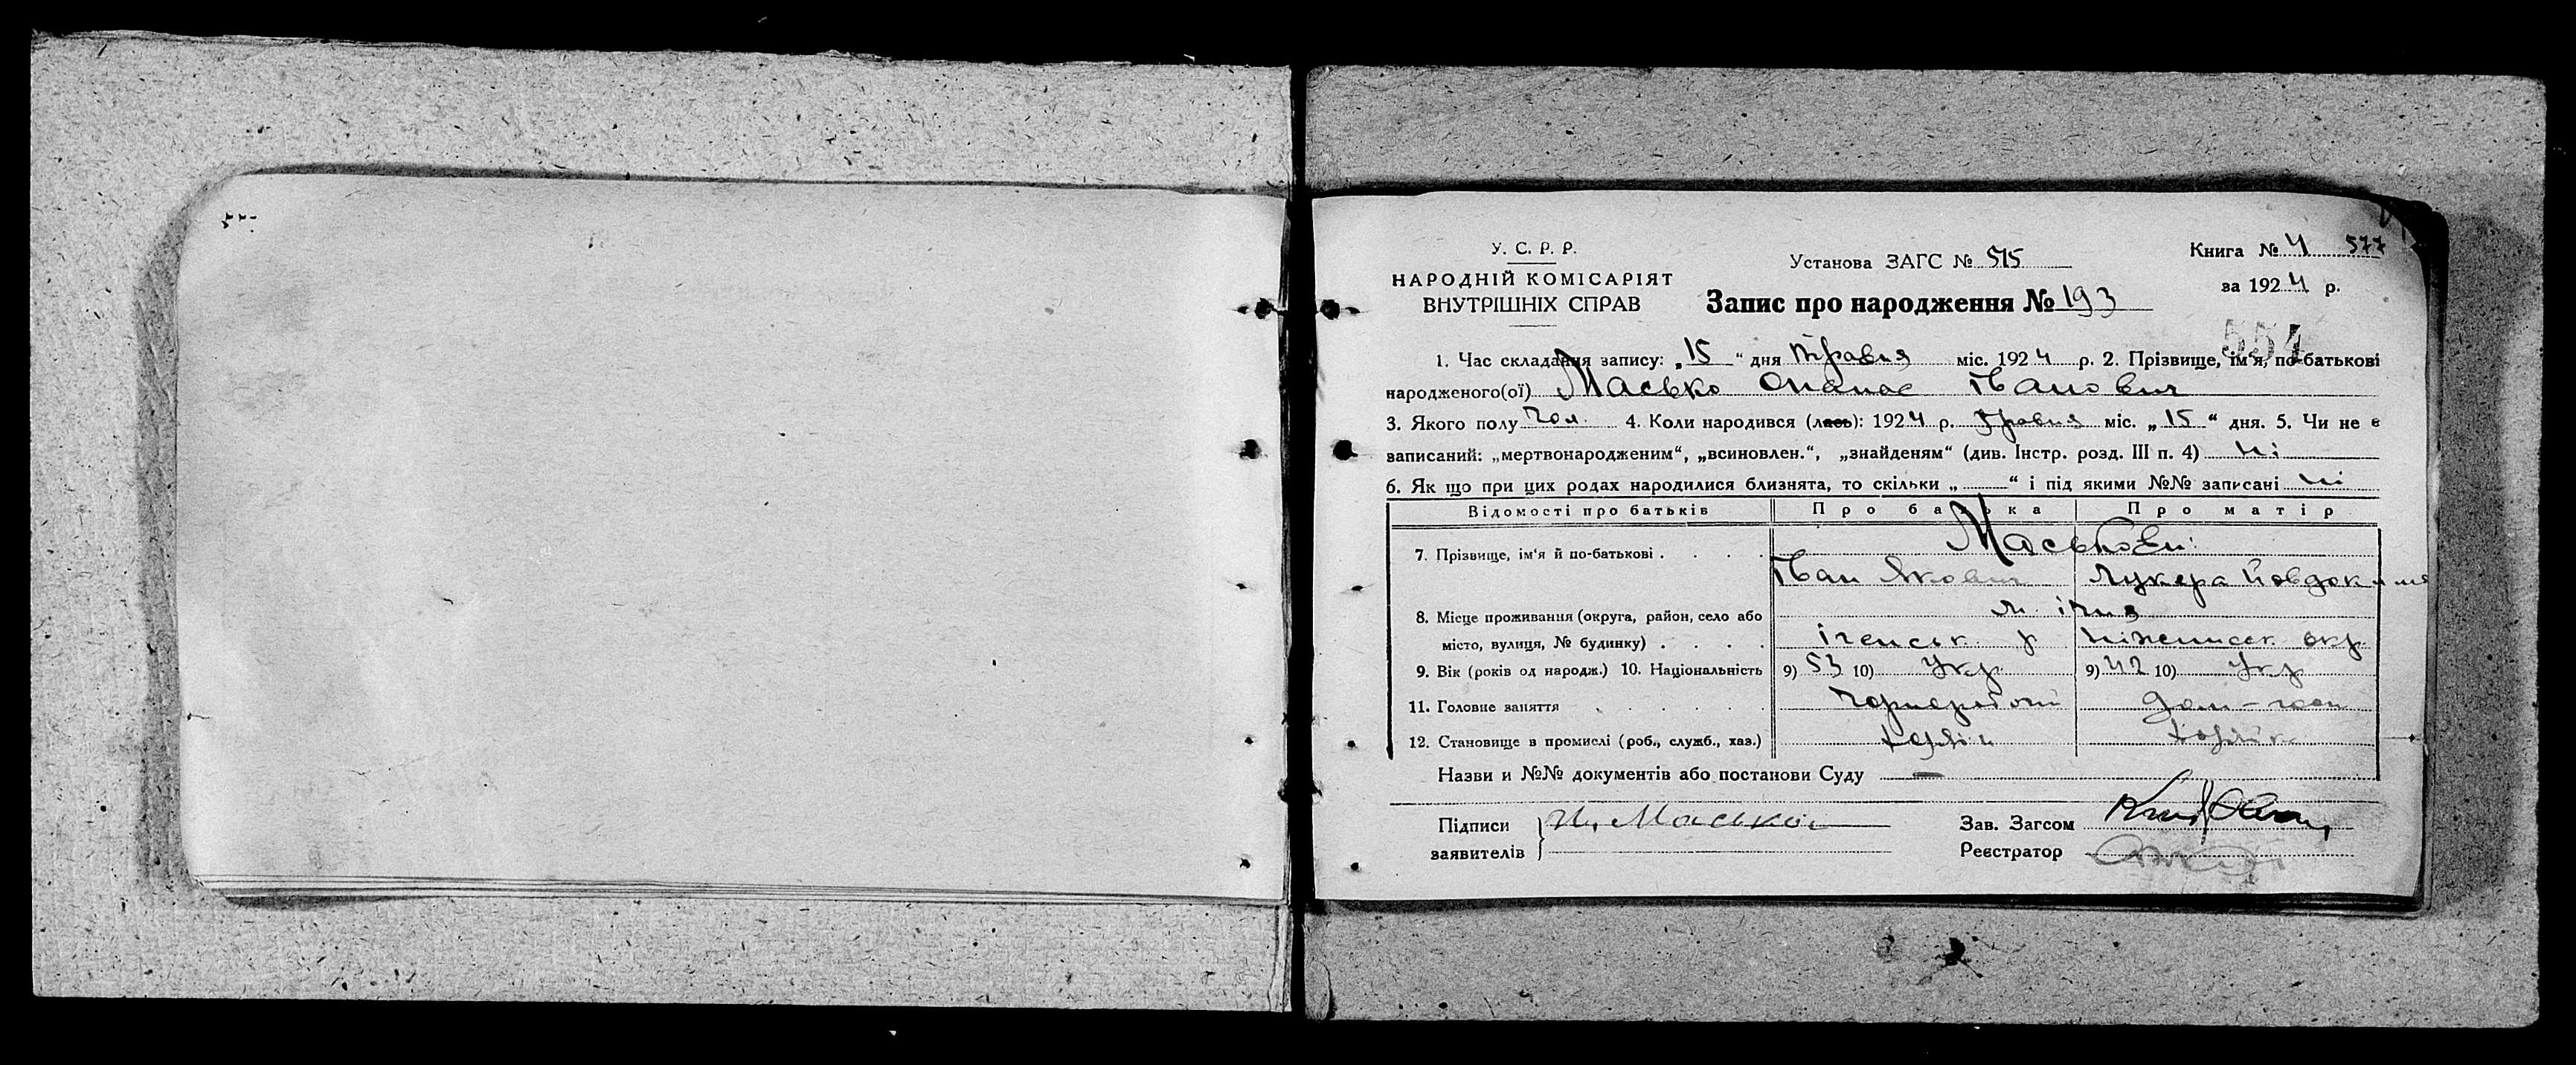 У. С. Р. Р.
НАРОДНІЙ КОМІСАРІЯТ
ВНУТРІШНІХ СПРАВ
Установа ЗАГС № 515
Запис про народження № 193
Книга № 4 577
за 1924 р.
554
1. Час складання запису: „15“ дня Травня міс. 1924 р. 2. Прізвище, ім'я, по-батькові
народженого(ої) Масько Опанас Іванович
3. Якого полу чол. 4. Коли народився (лась): 1924 р. Травня міс. „15“ дня. 5. Чи не є
записаний: „мертвонародженим“, „всиновлен.“, „знайденям“ (див. Інстр. розд. III п. 4) ні
6. Як що при цих родах народилися близнята, то скільки „ “ і під якими №№ записані ні
Відомості про батьків Про батька Про матір
7. Прізвище, ім'я й по-батькові . . . . Маськови
Іван Якович Лукера Йовдокимів
8. Місце проживання (округа, район, село або м. Ічня
місто, вулиця, № будинку) . . . . Іченськ. р Ніженськ. окр.
9. Вік (років од народж.) 10. Національність 9) 53 10) Укр. 9) 42 10) Укр
11. Головне заняття . . . . . . чорнороб дом-госп
12. Становище в промислі (роб., служб., хаз.)
Назви и №№ документів або постанови Суду —
Підписи И. Масько
заявителів
Зав. Загсом
Реєстратор